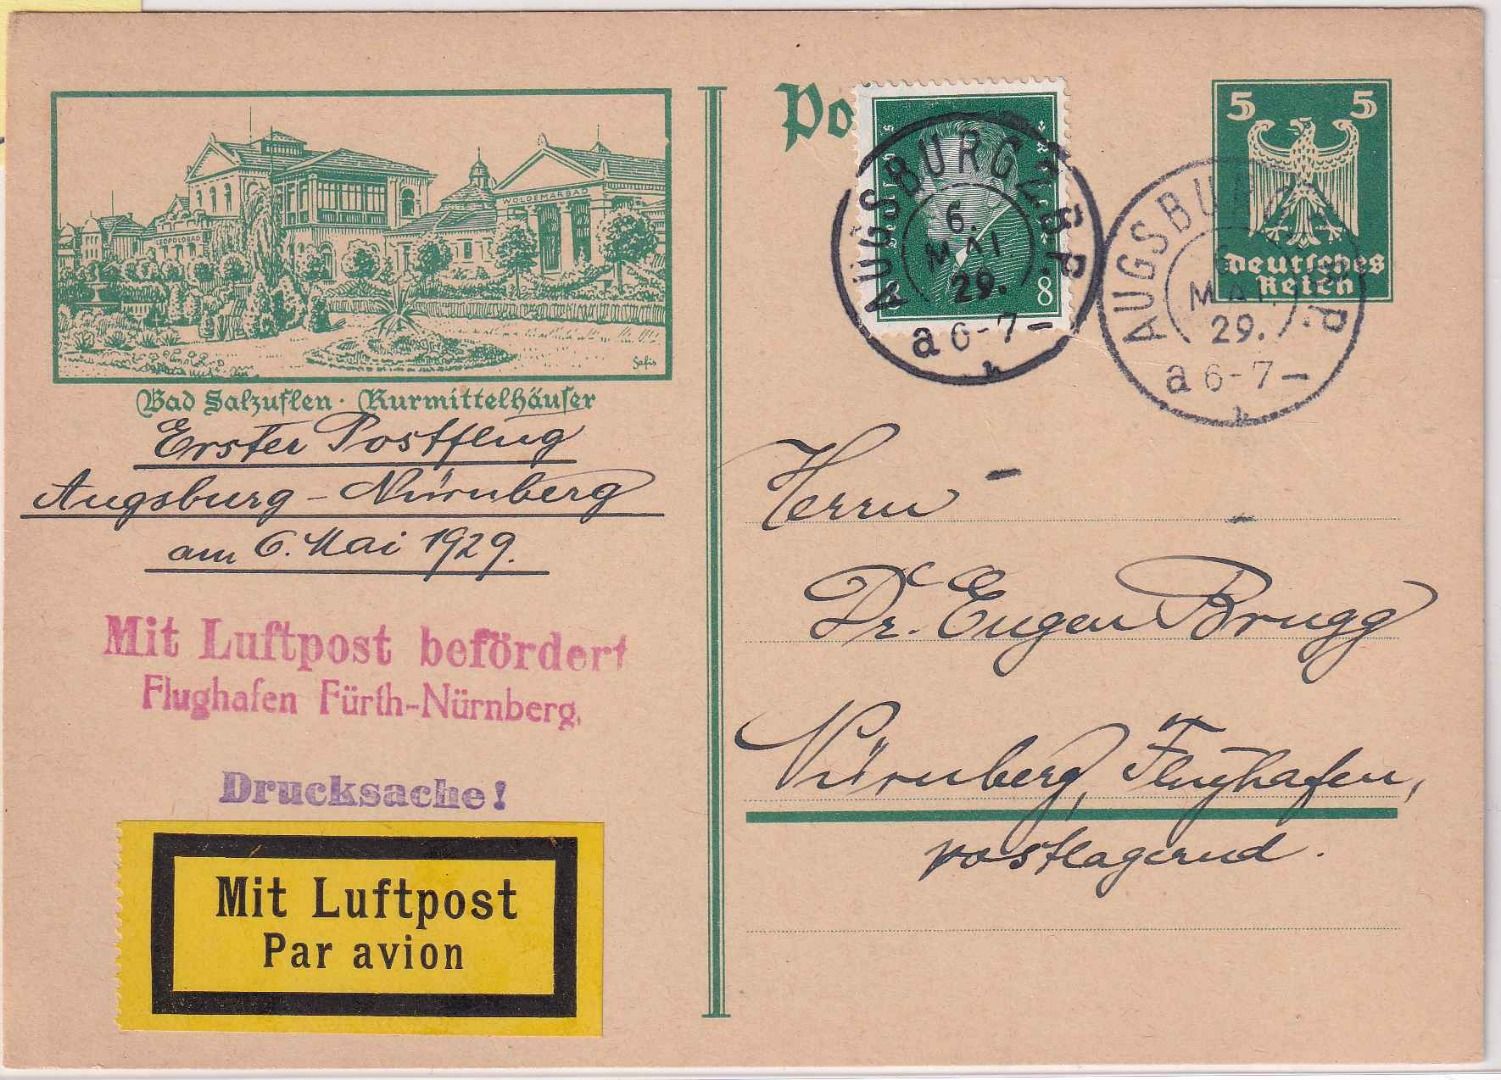 LEOPOLDBAD
WOLDEMARBAD
Safis
Bad Salzuflen · Kurmittelhäuser
Erster Postflug
Augsburg - Nürnberg
am 6. Mai 1929.
Mit Luftpost befördert
Flughafen Fürth-Nürnberg.
Drucksache!
Mit Luftpost
Par avion
Po
8
AUGSBURG 2 B.P.
6.
MAI
29.
a 6-7-
5 5
Deutsches
Reich
AUGSBURG
6.
MAI
29.
a 6-7-
Herrn
Dr. Eugen Brugg
Nürnberg, Flughafen,
postlagernd.